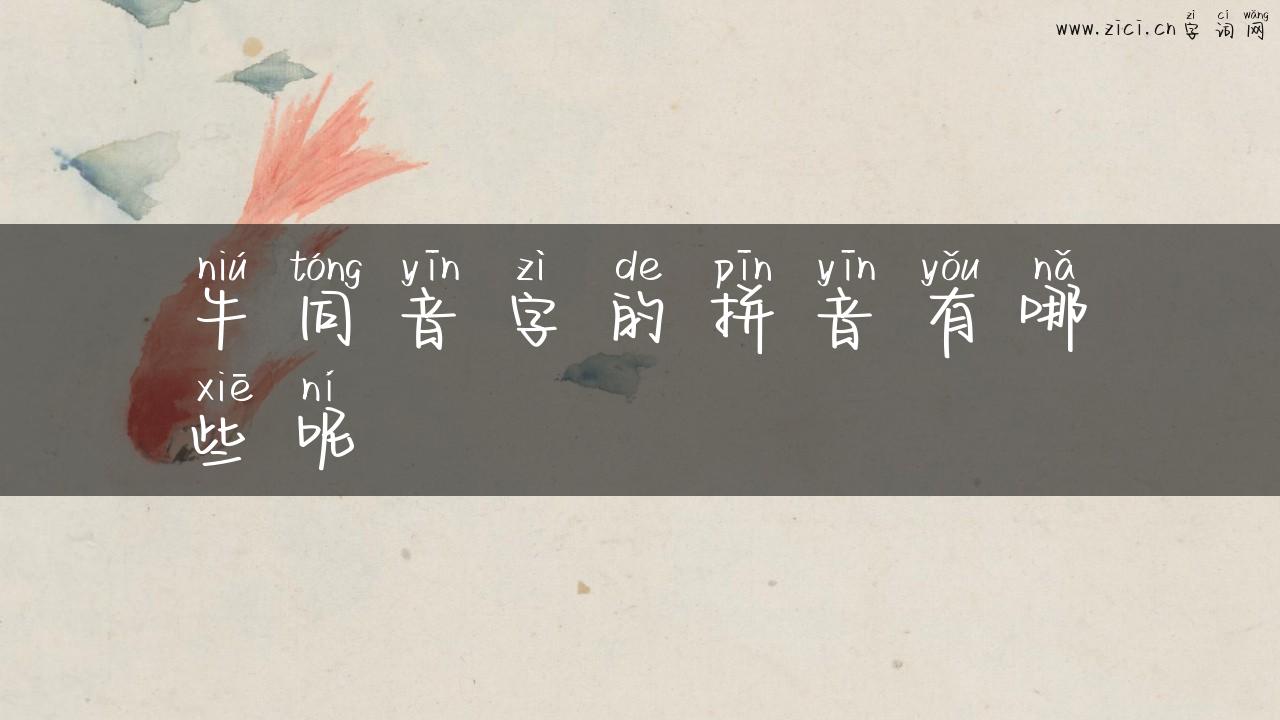 zì cí wǎng
www.zici.cn 字 词 网
niú tóng yīn zì de pīn yīn yǒu nǎ
牛 同 音 字 的 拼 音 有 哪
xiē ní
些 呢